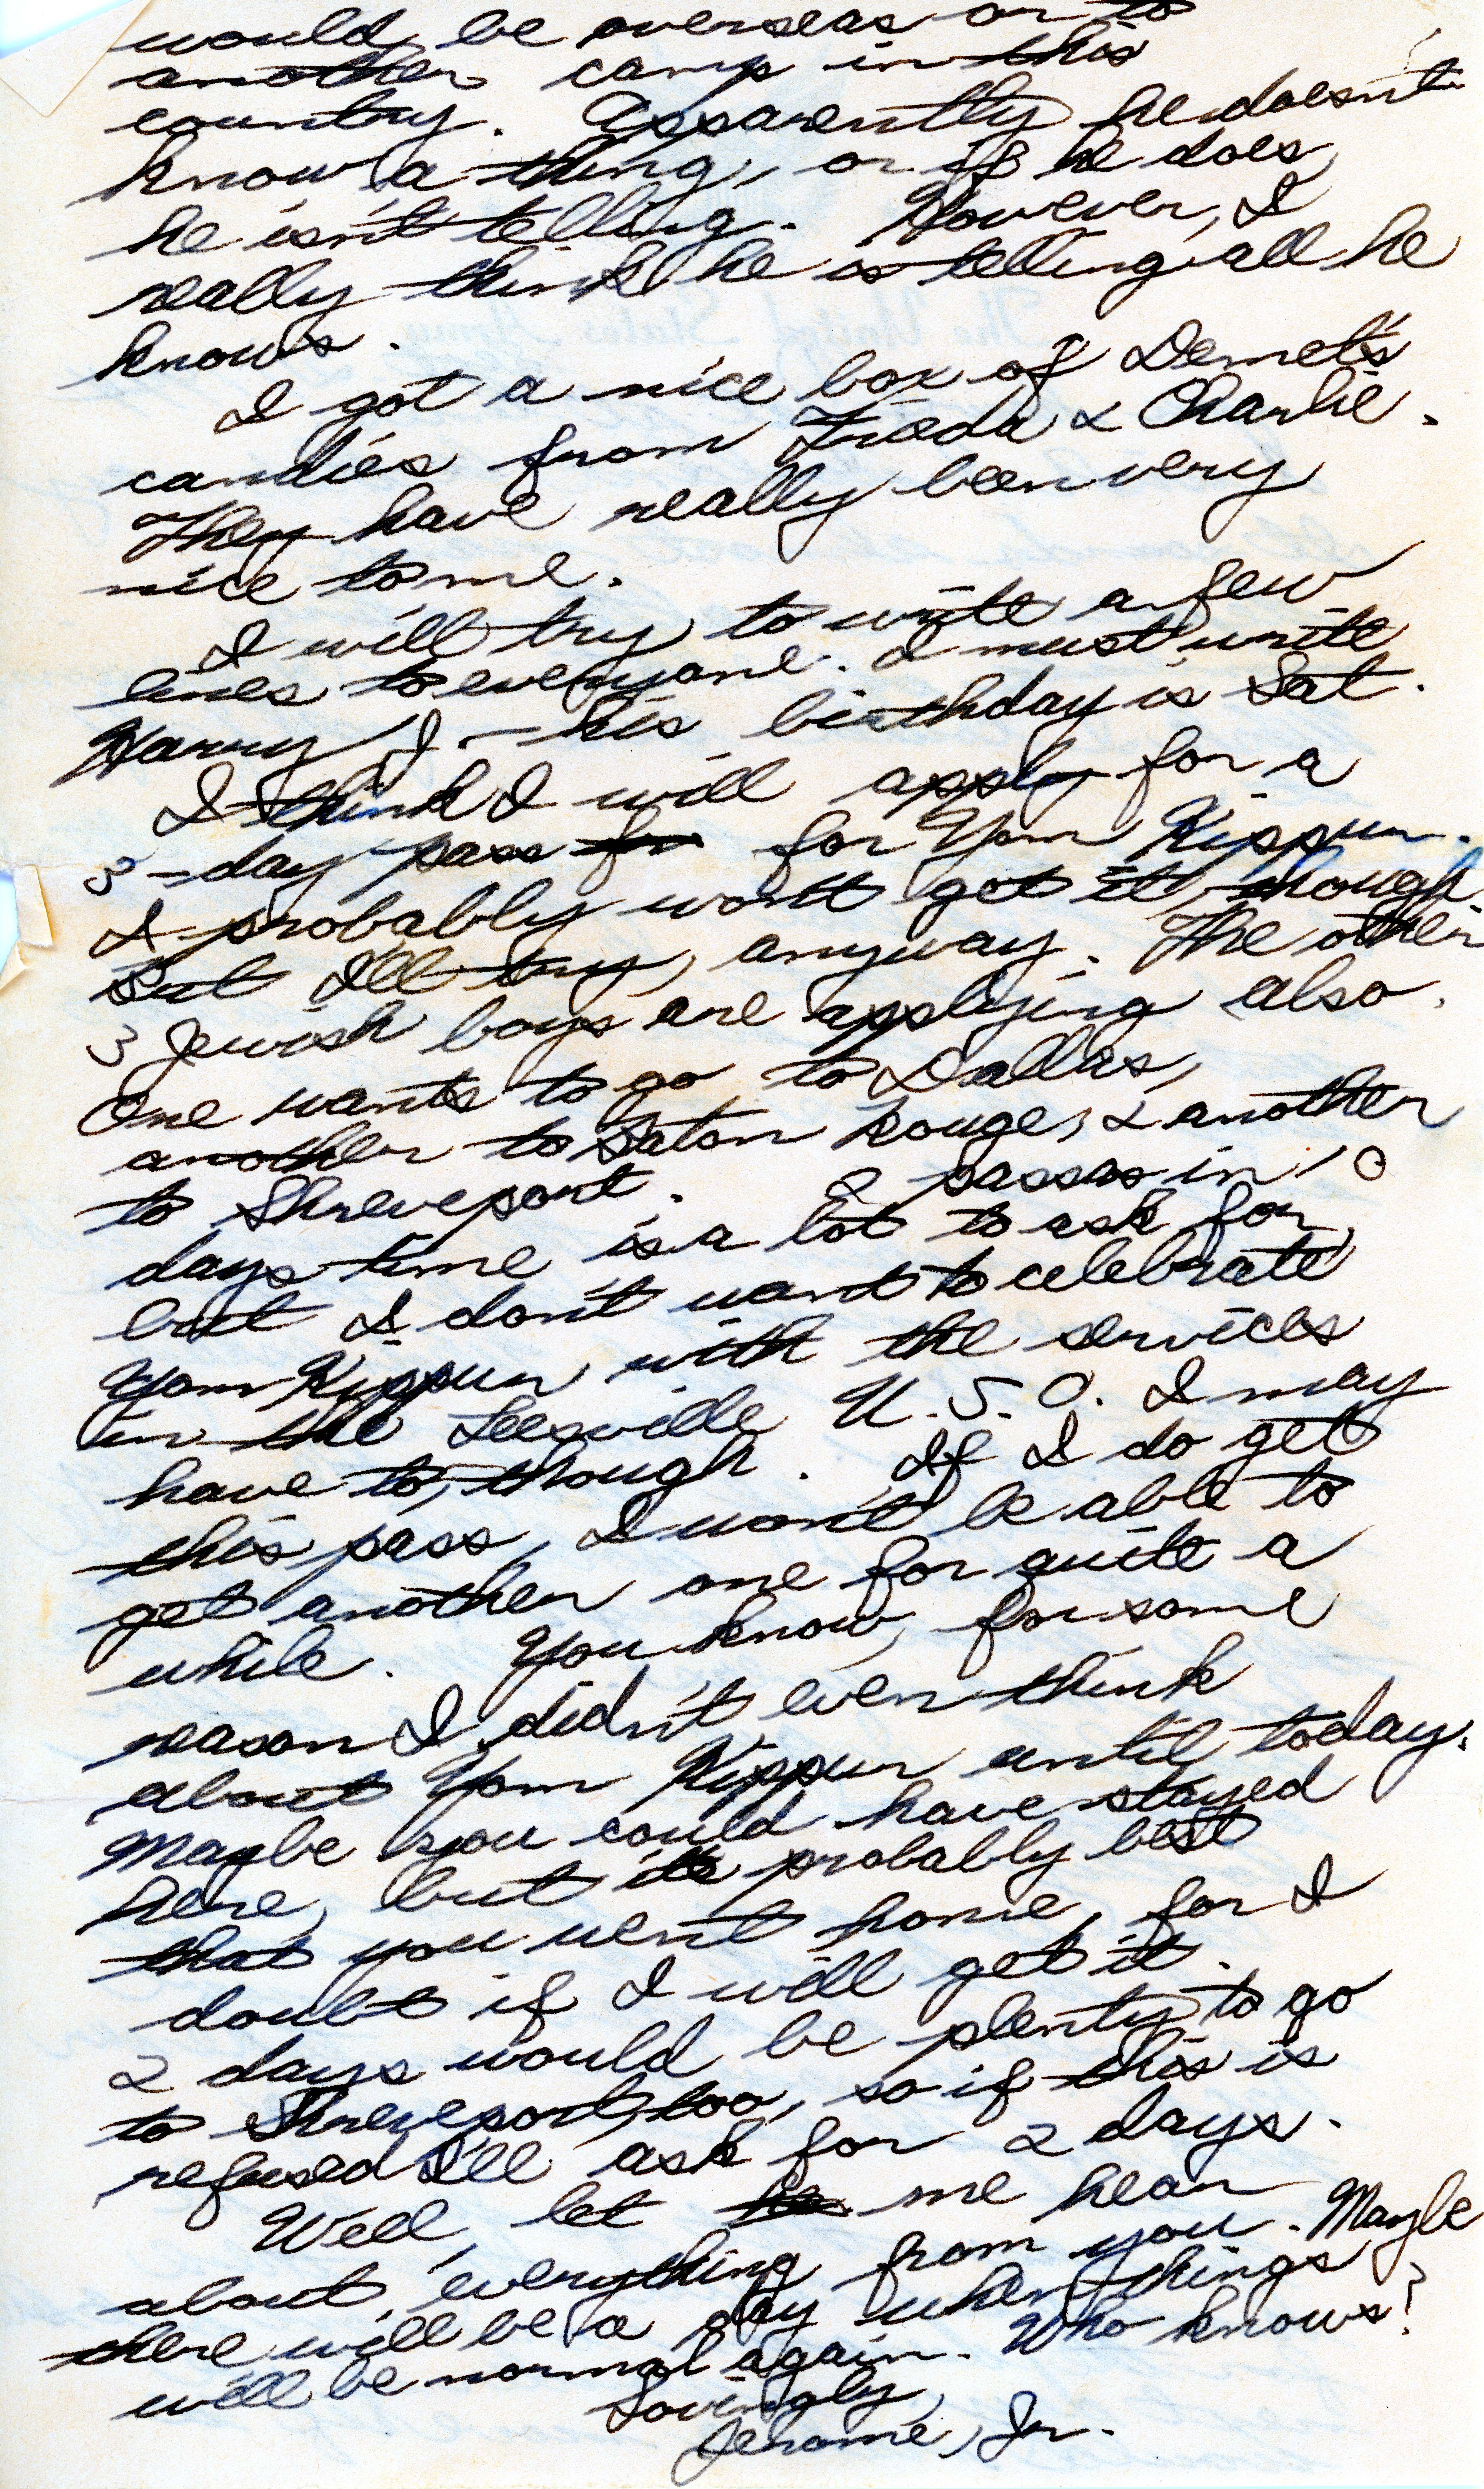 would be overseas or to
another camp in this
country. Apparently he doesn't
know a thing, or if he does,
he isn't telling. However, I
really think he is telling all he
knows.
I got a nice box of Demet's
candies from Frieda & Charlie.
They have really been very
nice to me.
I will try to write a few
lines to everyone. I must write
Harry J - his birthday is Sat.
I think I will apply for a
3-day pass for for Yom Kippur.
I probably won't get it, though.
But I'll try, anyway. The other
3 Jewish boys are applying also.
One wants to go to Dallas,
another to Baton Rouge, & another
to Shreveport. 2 passes in 10
days time is a lot to ask for,
but I don't want to celebrate
Yom Kippur with the services
in the Leesville U.S.O. I may
have to, though. If I do get
this pass, I won't be able to
get another one for quite a
while. You know, for some
reason I didn't even think
about Yom Kippur until today.
Maybe you could have stayed
here, but it's probably best
that you went home, for I
doubt if I will get it.
2 days would be plenty to go
to Shreveport, too, so if this is
refused I'll ask for 2 days.
Well, let me hear
about everything from you. Maybe
there will be a day when things
will be normal again. Who knows?
Lovingly,
Jerome, Jr.
The United States Army